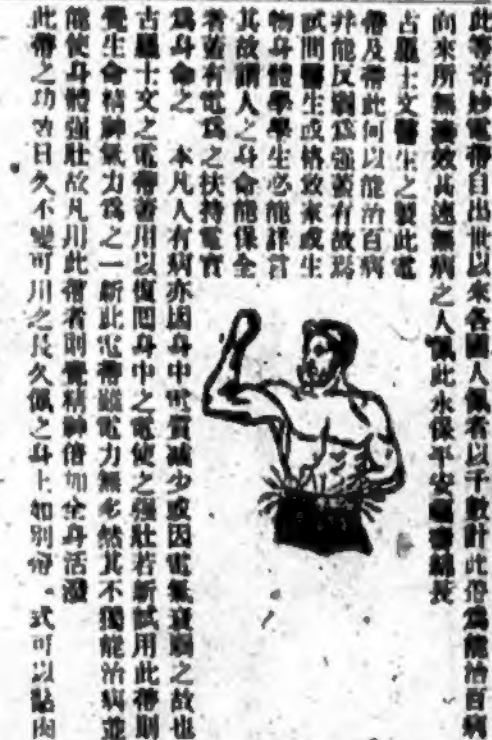 此等奇妙電帶自出世以來各國人佩者以千數計此帶為能治百病
向來所無 效甚速無病之人佩此永保平安 壽綿長
古 士文醫生之製此電
帶及帶此何以能治百病
并能反弱為強蓋有故焉
試問醫生或格致家或生
物身體學學生必能詳答
其故謂人之身命能保全
者蓋有電為之扶持電實
為身命之 本凡人有病亦因身中電質減少或因電氣衰弱之故也
古 士文之電帶善用以復回身中之電使之強壯若新試用此帶則
覺生命精神氣力為之一新此電帶雖電力無多然其不獨能治病並
能使身體強壯故凡用此帶者則覺精神倍加全身活潑
此帶之功效日久不變可用之長久佩之身上如別 式可以貼肉